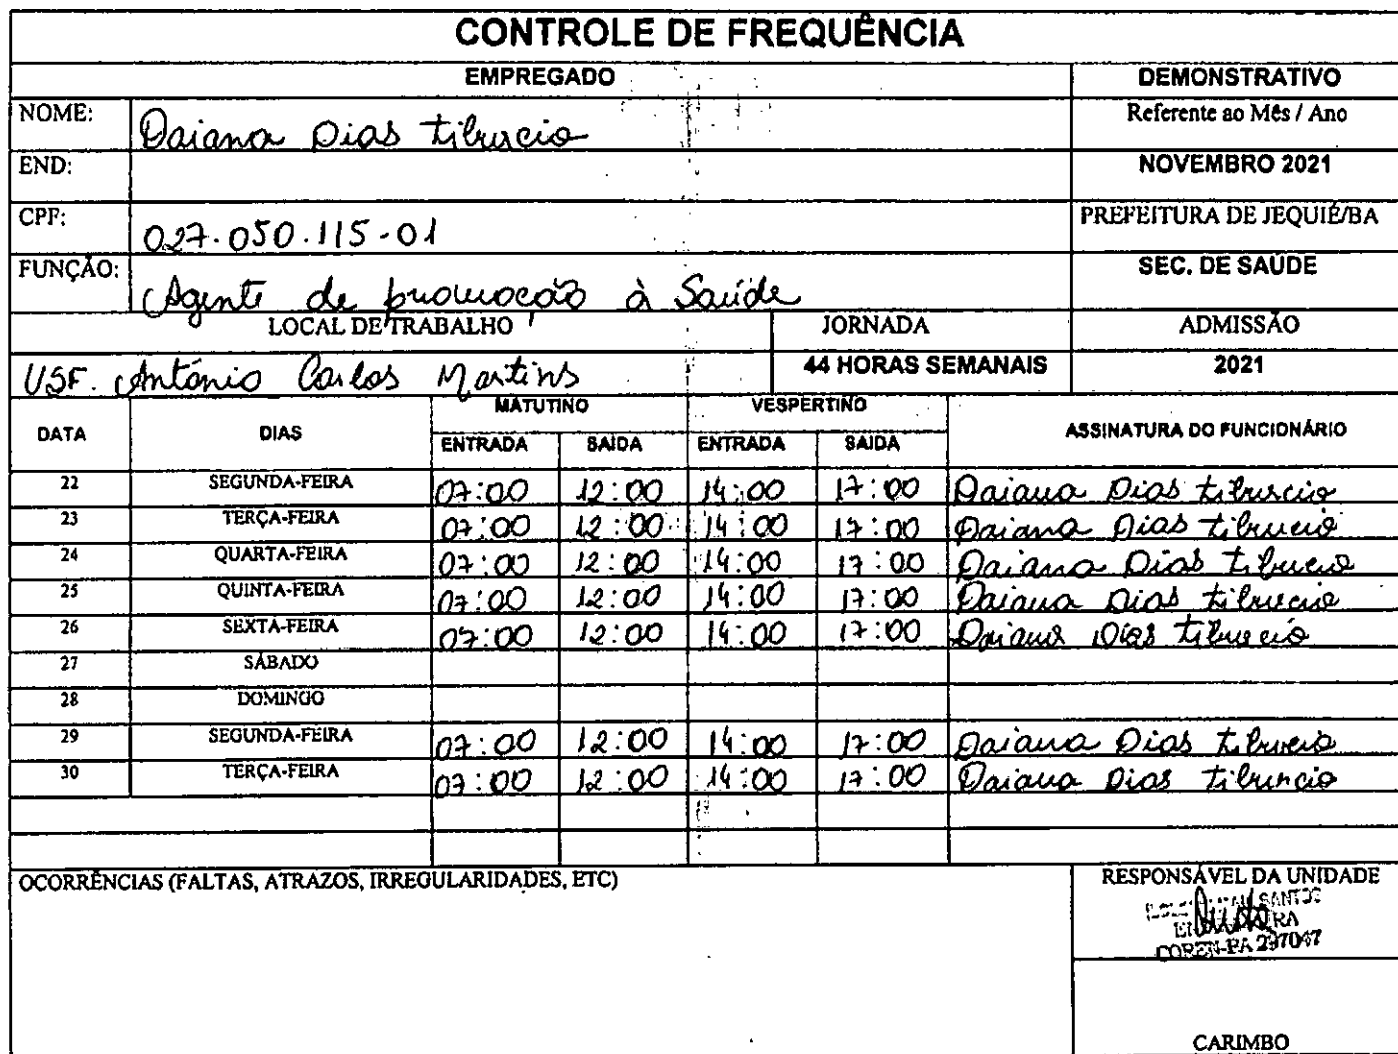 CONTROLE DE FREQUÊNCIA
EMPREGADO DEMONSTRATIVO
NOME: Daiana Dias tiburcio Referente ao Mês / Ano
END: NOVEMBRO 2021
CPF: 027.050.115-01 PREFEITURA DE JEQUIÉ/BA
FUNÇÃO: Agente de promoção à Saúde SEC. DE SAÚDE
LOCAL DE TRABALHO JORNADA ADMISSÃO
USF. Antônio Carlos Martins 44 HORAS SEMANAIS 2021
MATUTINO VESPERTINO
DATA DIAS ENTRADA SAIDA ENTRADA SAIDA ASSINATURA DO FUNCIONÁRIO
22 SEGUNDA-FEIRA 07:00 12:00 14:00 17:00 Daiana Dias tiburcio
23 TERÇA-FEIRA 07:00 12:00 14:00 17:00 Daiana Dias tiburcio
24 QUARTA-FEIRA 07:00 12:00 14:00 17:00 Daiana Dias tiburcio
25 QUINTA-FEIRA 07:00 12:00 14:00 17:00 Daiana Dias tiburcio
26 SEXTA-FEIRA 07:00 12:00 14:00 17:00 Daiana Dias tiburcio
27 SÁBADO
28 DOMINGO
29 SEGUNDA-FEIRA 07:00 12:00 14:00 17:00 Daiana Dias tiburcio
30 TERÇA-FEIRA 07:00 12:00 14:00 17:00 Daiana Dias tiburcio
OCORRÊNCIAS (FALTAS, ATRAZOS, IRREGULARIDADES, ETC) RESPONSÁVEL DA UNIDADE
SANTOS
297047
CARIMBO